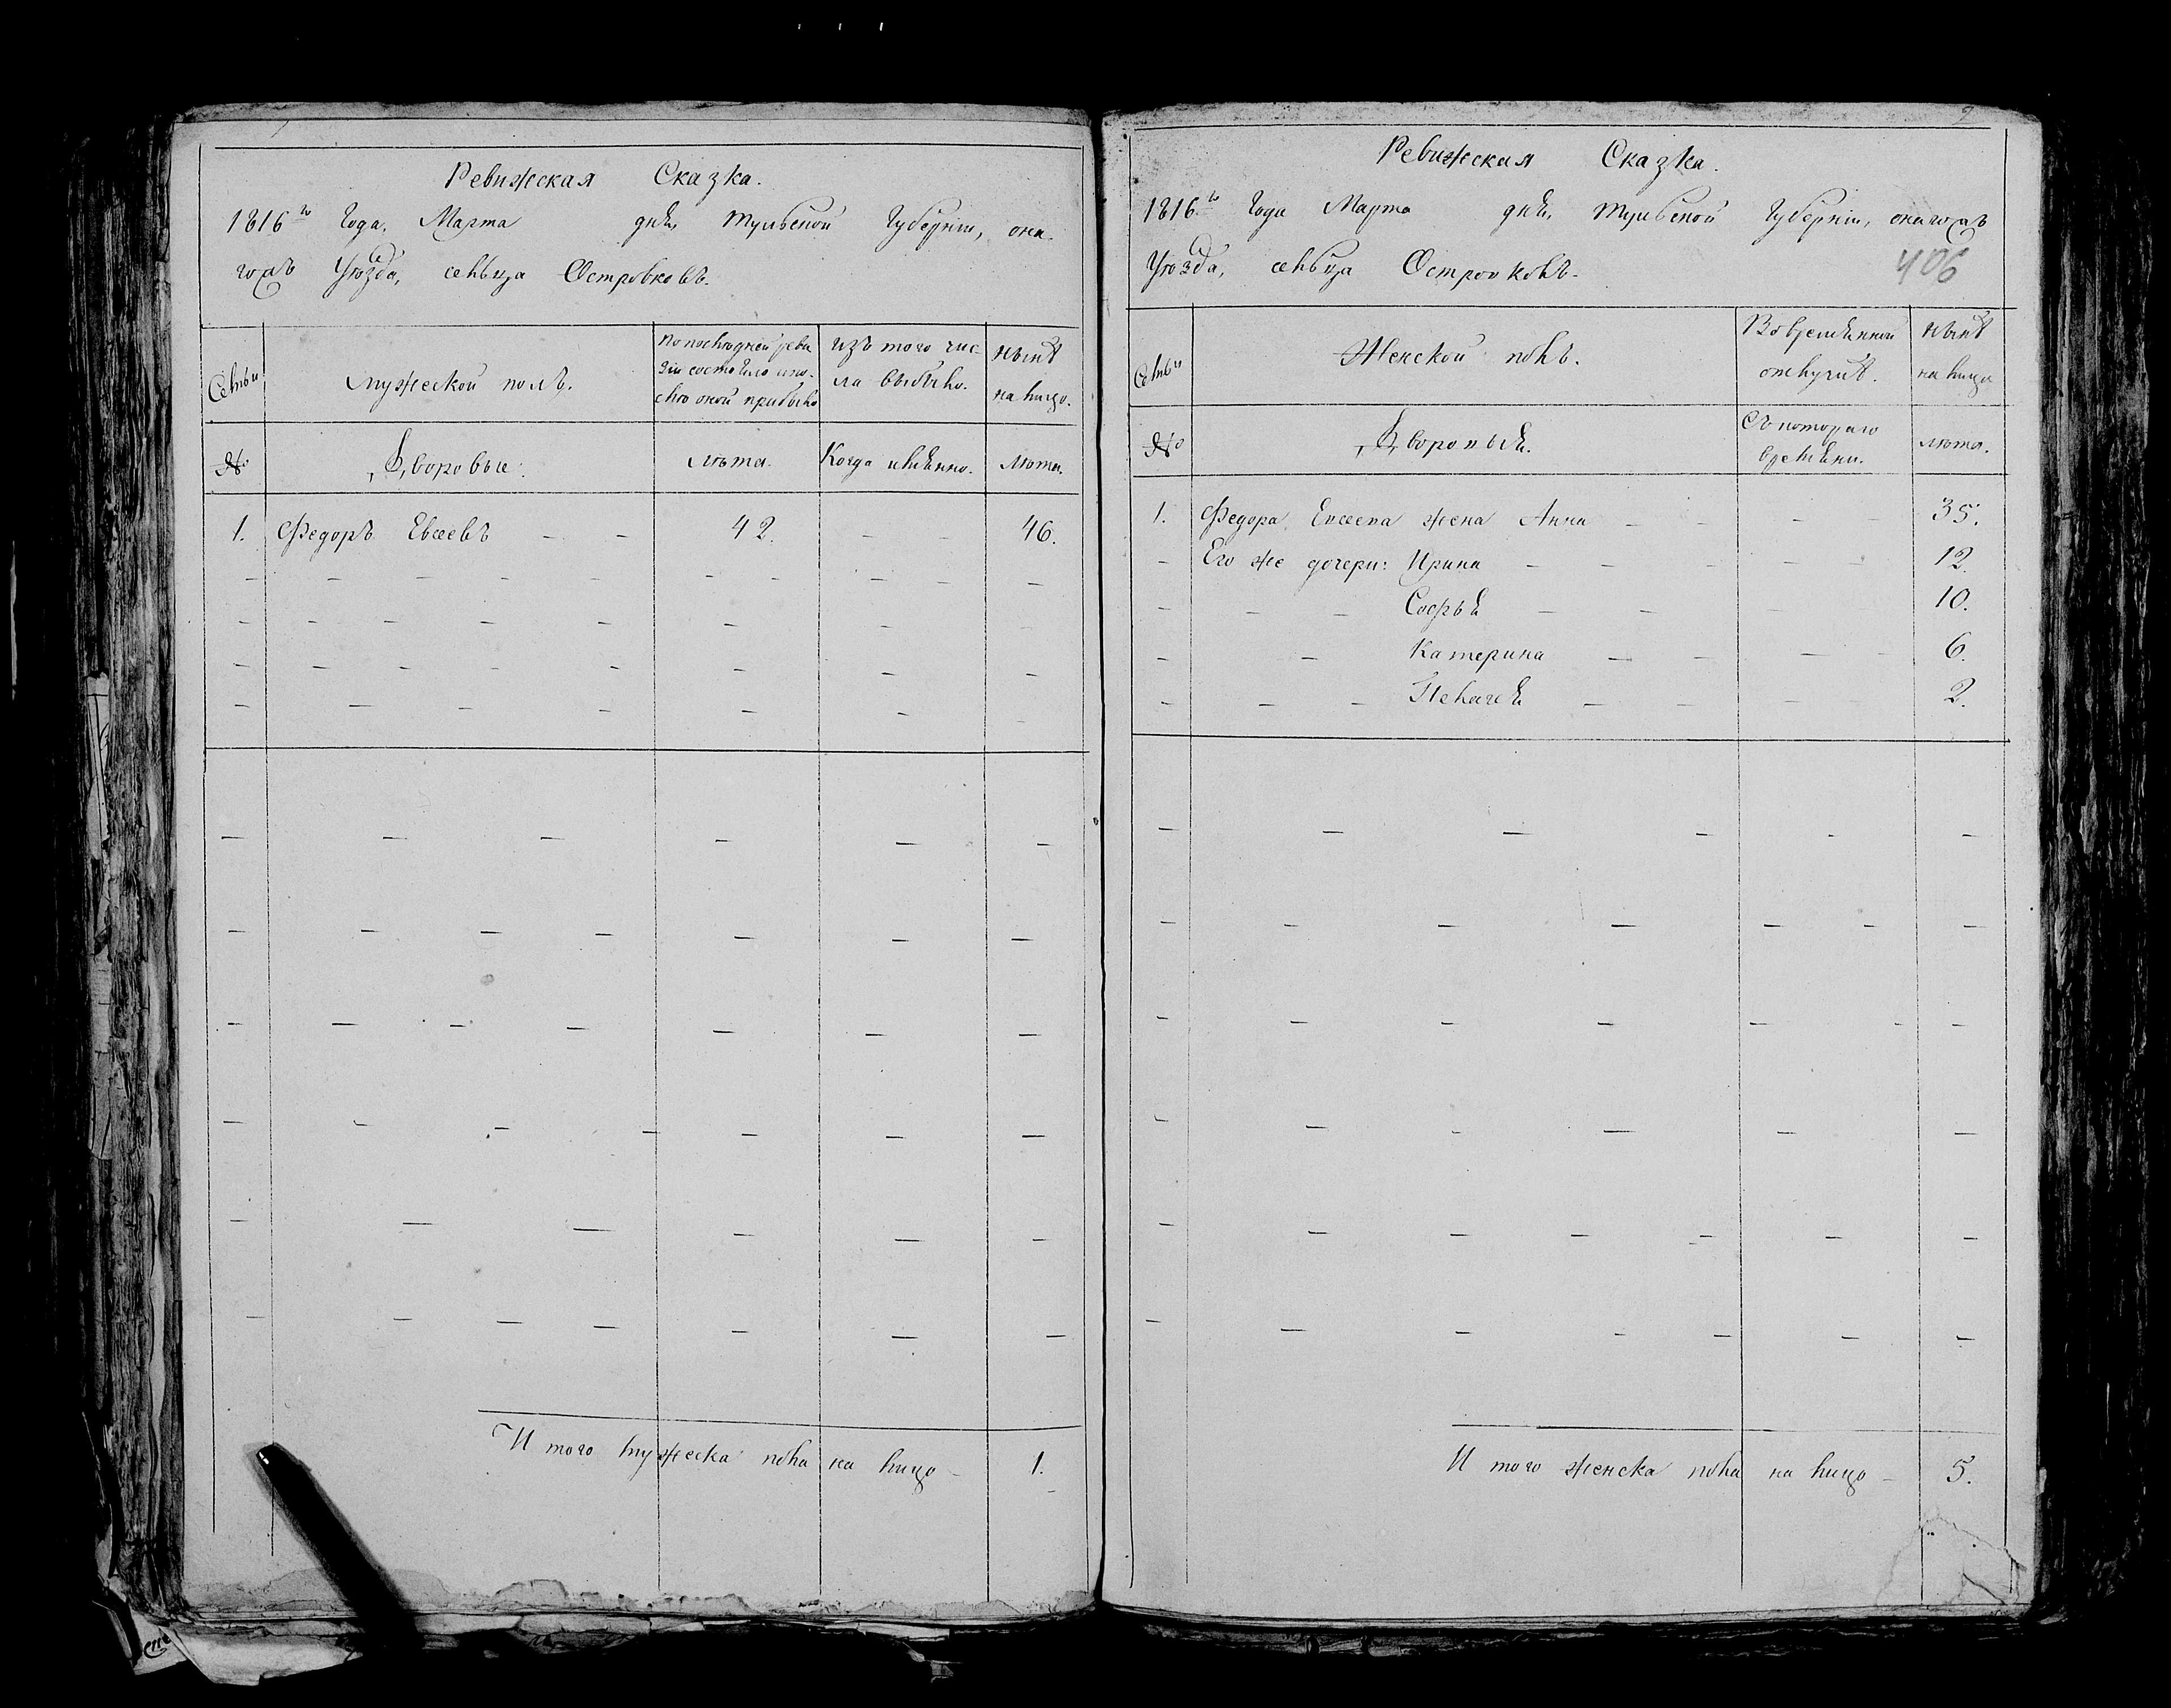 Ревижская Сказка.
1816го Года, Марта дня, Тульской Губерніи, она-
гожъ Уѣзда, сельца Островковъ.
Семьи
Мужеской полъ.
По последней реви
зіи состояло и по-
слѣ оной прибыло
Изъ того чис-
ла выбыло.
Нынѣ
на лицо.
№
Дворовые:
Лѣта.
Когда имянно.
Лѣта.
1. Федоръ Евсеевъ — — 42. — — 46.
Итого мужеска пола на лицо — 1.
2
Ревижская Сказка.
1816го Года Марта дня, Тульской Губерніи, онагожъ
Уѣзда, сельца Островковъ.
406
Семьи
Женской полъ.
Во временной
отлучкѣ.
Нынѣ
на лицо
№
Дворовыя.
Съ котораго
времяни.
Лѣта.
1. Федора Евсеева жена Анна — — — — 35.
— Его же дочери: Ирина — — — — — 12.
— — — Софья — — — 10.
— — Катерина — — — — 6.
— — — Пелагея — — — — 2.
Итого женска пола на лицо — 5.